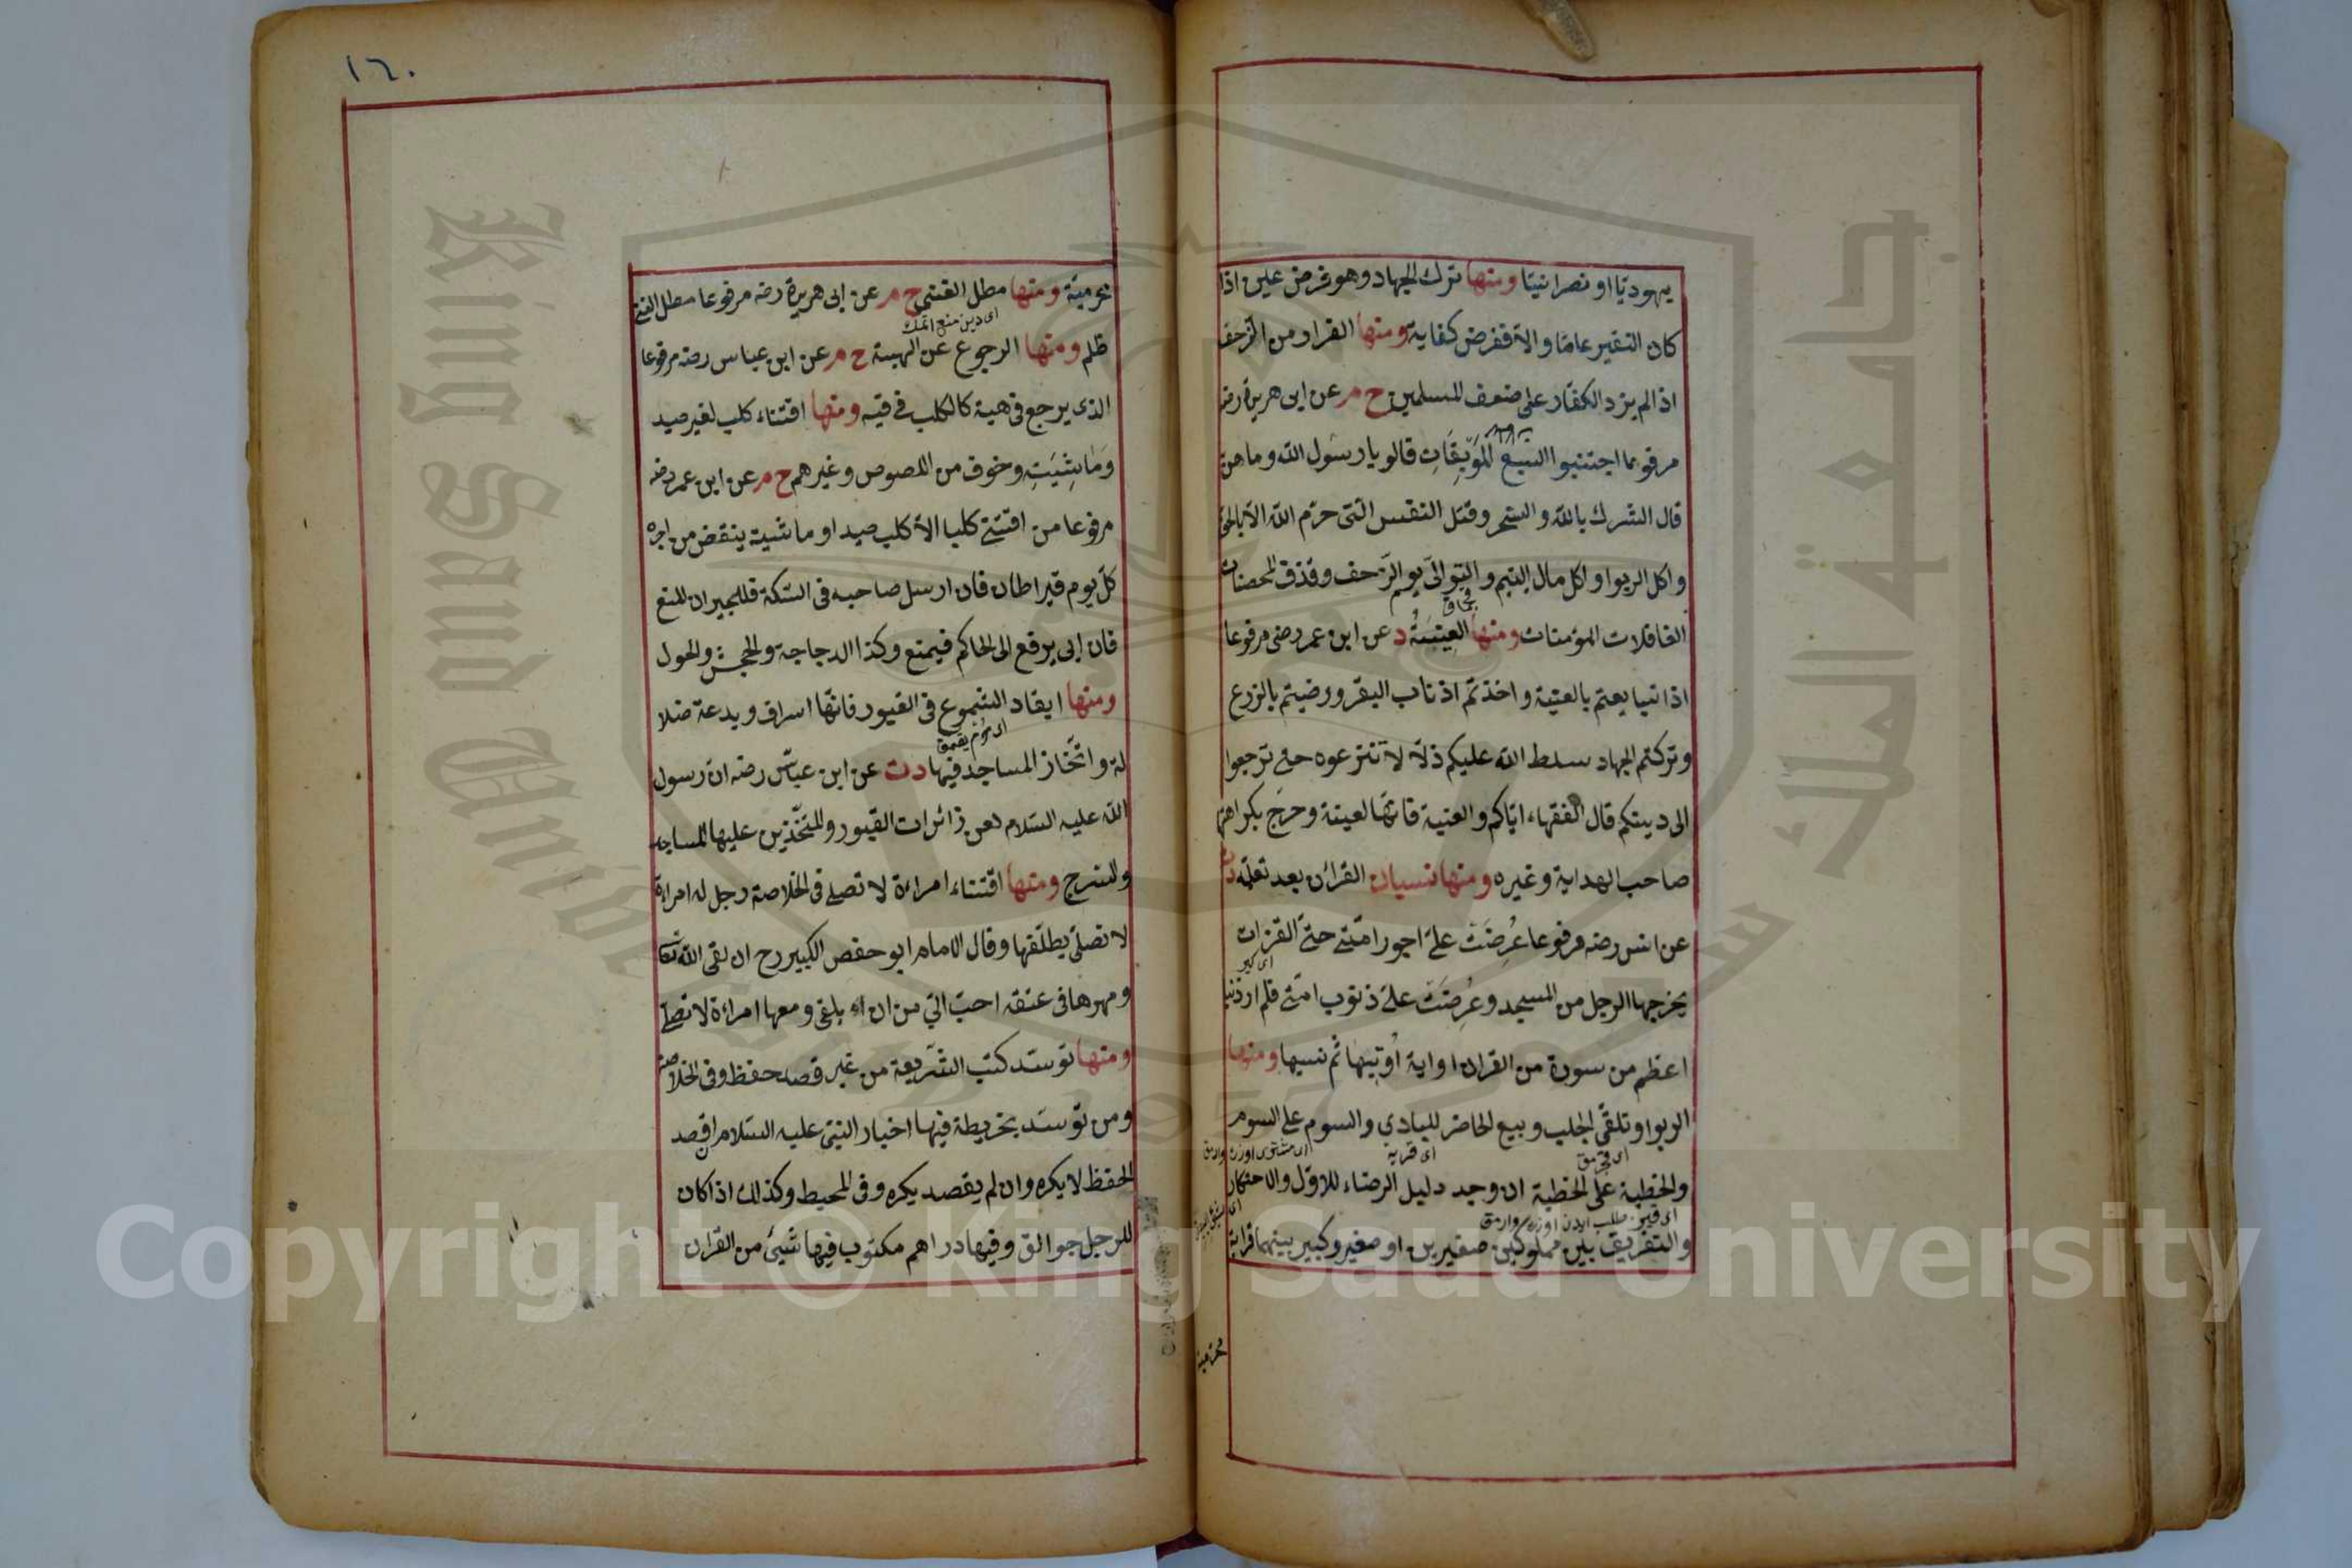 يهوديّا او نصرانيّا ومنها ترك الجهاد وهو فرض عين اذا
كان النفير عامّا والّا ففرض كفاية ومنها الفرار من الزحف
اذا لم يزد الكفار على ضعف المسلمين ح م عن ابى هريرة رضه
مرفوعا اجتنبوا السبع المُوَبِّقَاتِ قالو يا رسول الله وما هن
قال الشرك بالله والسحر وقتل النفس التى حرّم الله الّا بالحق
واكل الربوا واكل مال اليتيم والتولّى يوم الزّحف وقذف المحصنات
الغافلات المؤمنات ومنها العِينَةُ د عن ابن عمر رضى مرفوعا
اذا تبايعتم بالعينة واخذتم اذناب البقر ورضيتم بالزرع
وتركتم الجهاد سلط الله عليكم ذلّا لا تنتزعوه حتى ترجعوا
الى دينكم قال الفقهاء ايّاكم والعينة فانّها لعينة وخرّج بكراهتها
صاحب الهداية وغيره ومنها نسيان القرأن بعد تعلّمه دت
عن انس رضه مرفوعا عُرِضَتْ علىّ اجور امّتى حتّى القزات
اى كبر
يخرجها الرجل من المسجد وعُرِضَتْ علىّ ذنوب امتى فلم ار ذنبا
اعظم من سورة من القران او اية أوتيها ثم نسيها ومنها
الربوا وتلقّى الجلب وبيع الحاضر للبادى والسوم على السوم
اى قريه
والخطبة على الخطبة ان وجد دليل الرضاء للاوّل والاحتكار
والتفريق بين مملوكين صغيرين او صغير وكبير بينهما قرابة
محرميّة
١٦٠
محرميّة ومنها مطل الغنى ح م عن ابى هريرة رضه مرفوعا مطل الغنى
ظلم ومنها الرجوع عن الهبة ح م عن ابن عباس رضه مرفوعا
الذى يرجع فى هبة كالكلب فى قيه ومنها اقتناء كلب لغير صيد
وَمَاشِيَتِهِ وخوف من اللصوص وغيرهم ح م عن ابن عمر رضه
مرفوعا من اقتنى كلبا الّا كلب صيد او ماشية ينقض من اجره
كلّ يوم قيراطان فان ارسل صاحبه فى السّكة فللجيران المنع
فان ابى يرفع الى الحاكم فيمنع وكذا الدجاجة والجحش والعول
ومنها ايقاد الشموع فى القبور فانّها اسراف وبدعة ضلا
لة واتّخاز المساجد فيها دت عن ابن عبّاس رضه ان رسول
الله عليه السّلام لعن زائرات القبور والمتّخذين عليها المساجد
والسرج ومنها اقتناء امراءة لا تصلى فى الخلاصة رجل له امراءة
لا تصلّى يطلّقها وقال الامام ابو حفص الكبير رح ان لقى الله تعا
ومهرها فى عنقه احبّ الىّ من ان يلقى ومعها امراءة لا تصلى
ومنها توسّد كتب الشّريعة من غير قصد حفظ وفى الخلاصة
ومن توسّد بخريطة فيها اخبار النبىّ عليه السّلام ان قصد
الحفظ لا يكره وان لم يقصد يكره وفى المحيط وكذلك اذا كان
للرجل جوالق وفيها دراهم مكتوب فيها شيئ من القران
King Saud University
جامعة الملك سعود
1957
Copyright © King Saud University